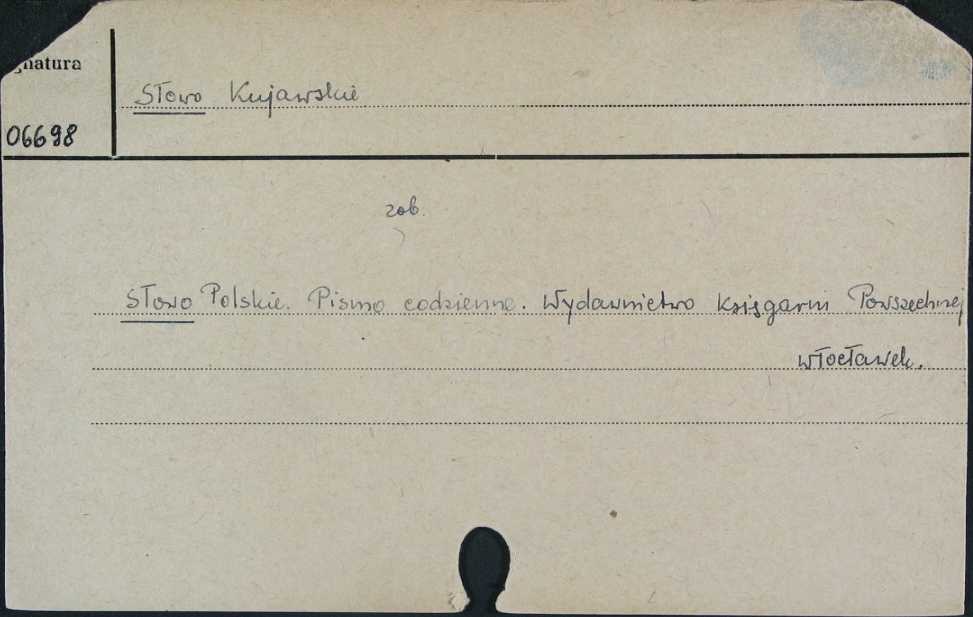 gnatura
Słowo Kujawskie
06698
zob.
Słowo Polskie. Pismo codzienne. Wydawnictwo Księgarni Powszechnej
Włocławek.